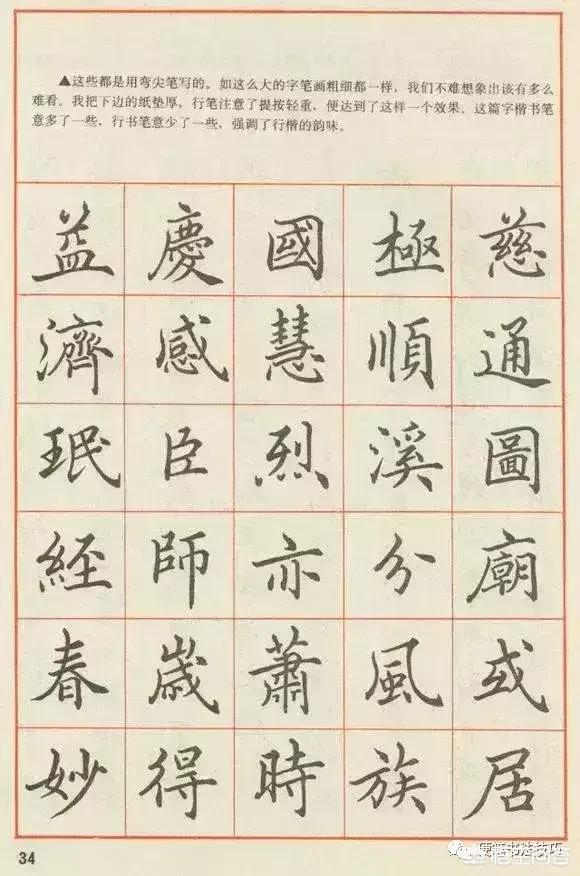 ▲这些都是用弯尖笔写的。如这么大的字笔画粗细都一样，我们不难想象出该有多么
难看。我把下边的纸垫厚，行笔注意了提按轻重，便达到了这样一个效果。这篇字楷书笔
意多了一些，行书笔意少了一些，强调了行楷的韵味。
益慶國極慈
濟感慧順通
珉臣烈溪圖
經師亦分廟
春歲蕭風或
妙得時族居
34
硬笔书法技巧
悟空问答